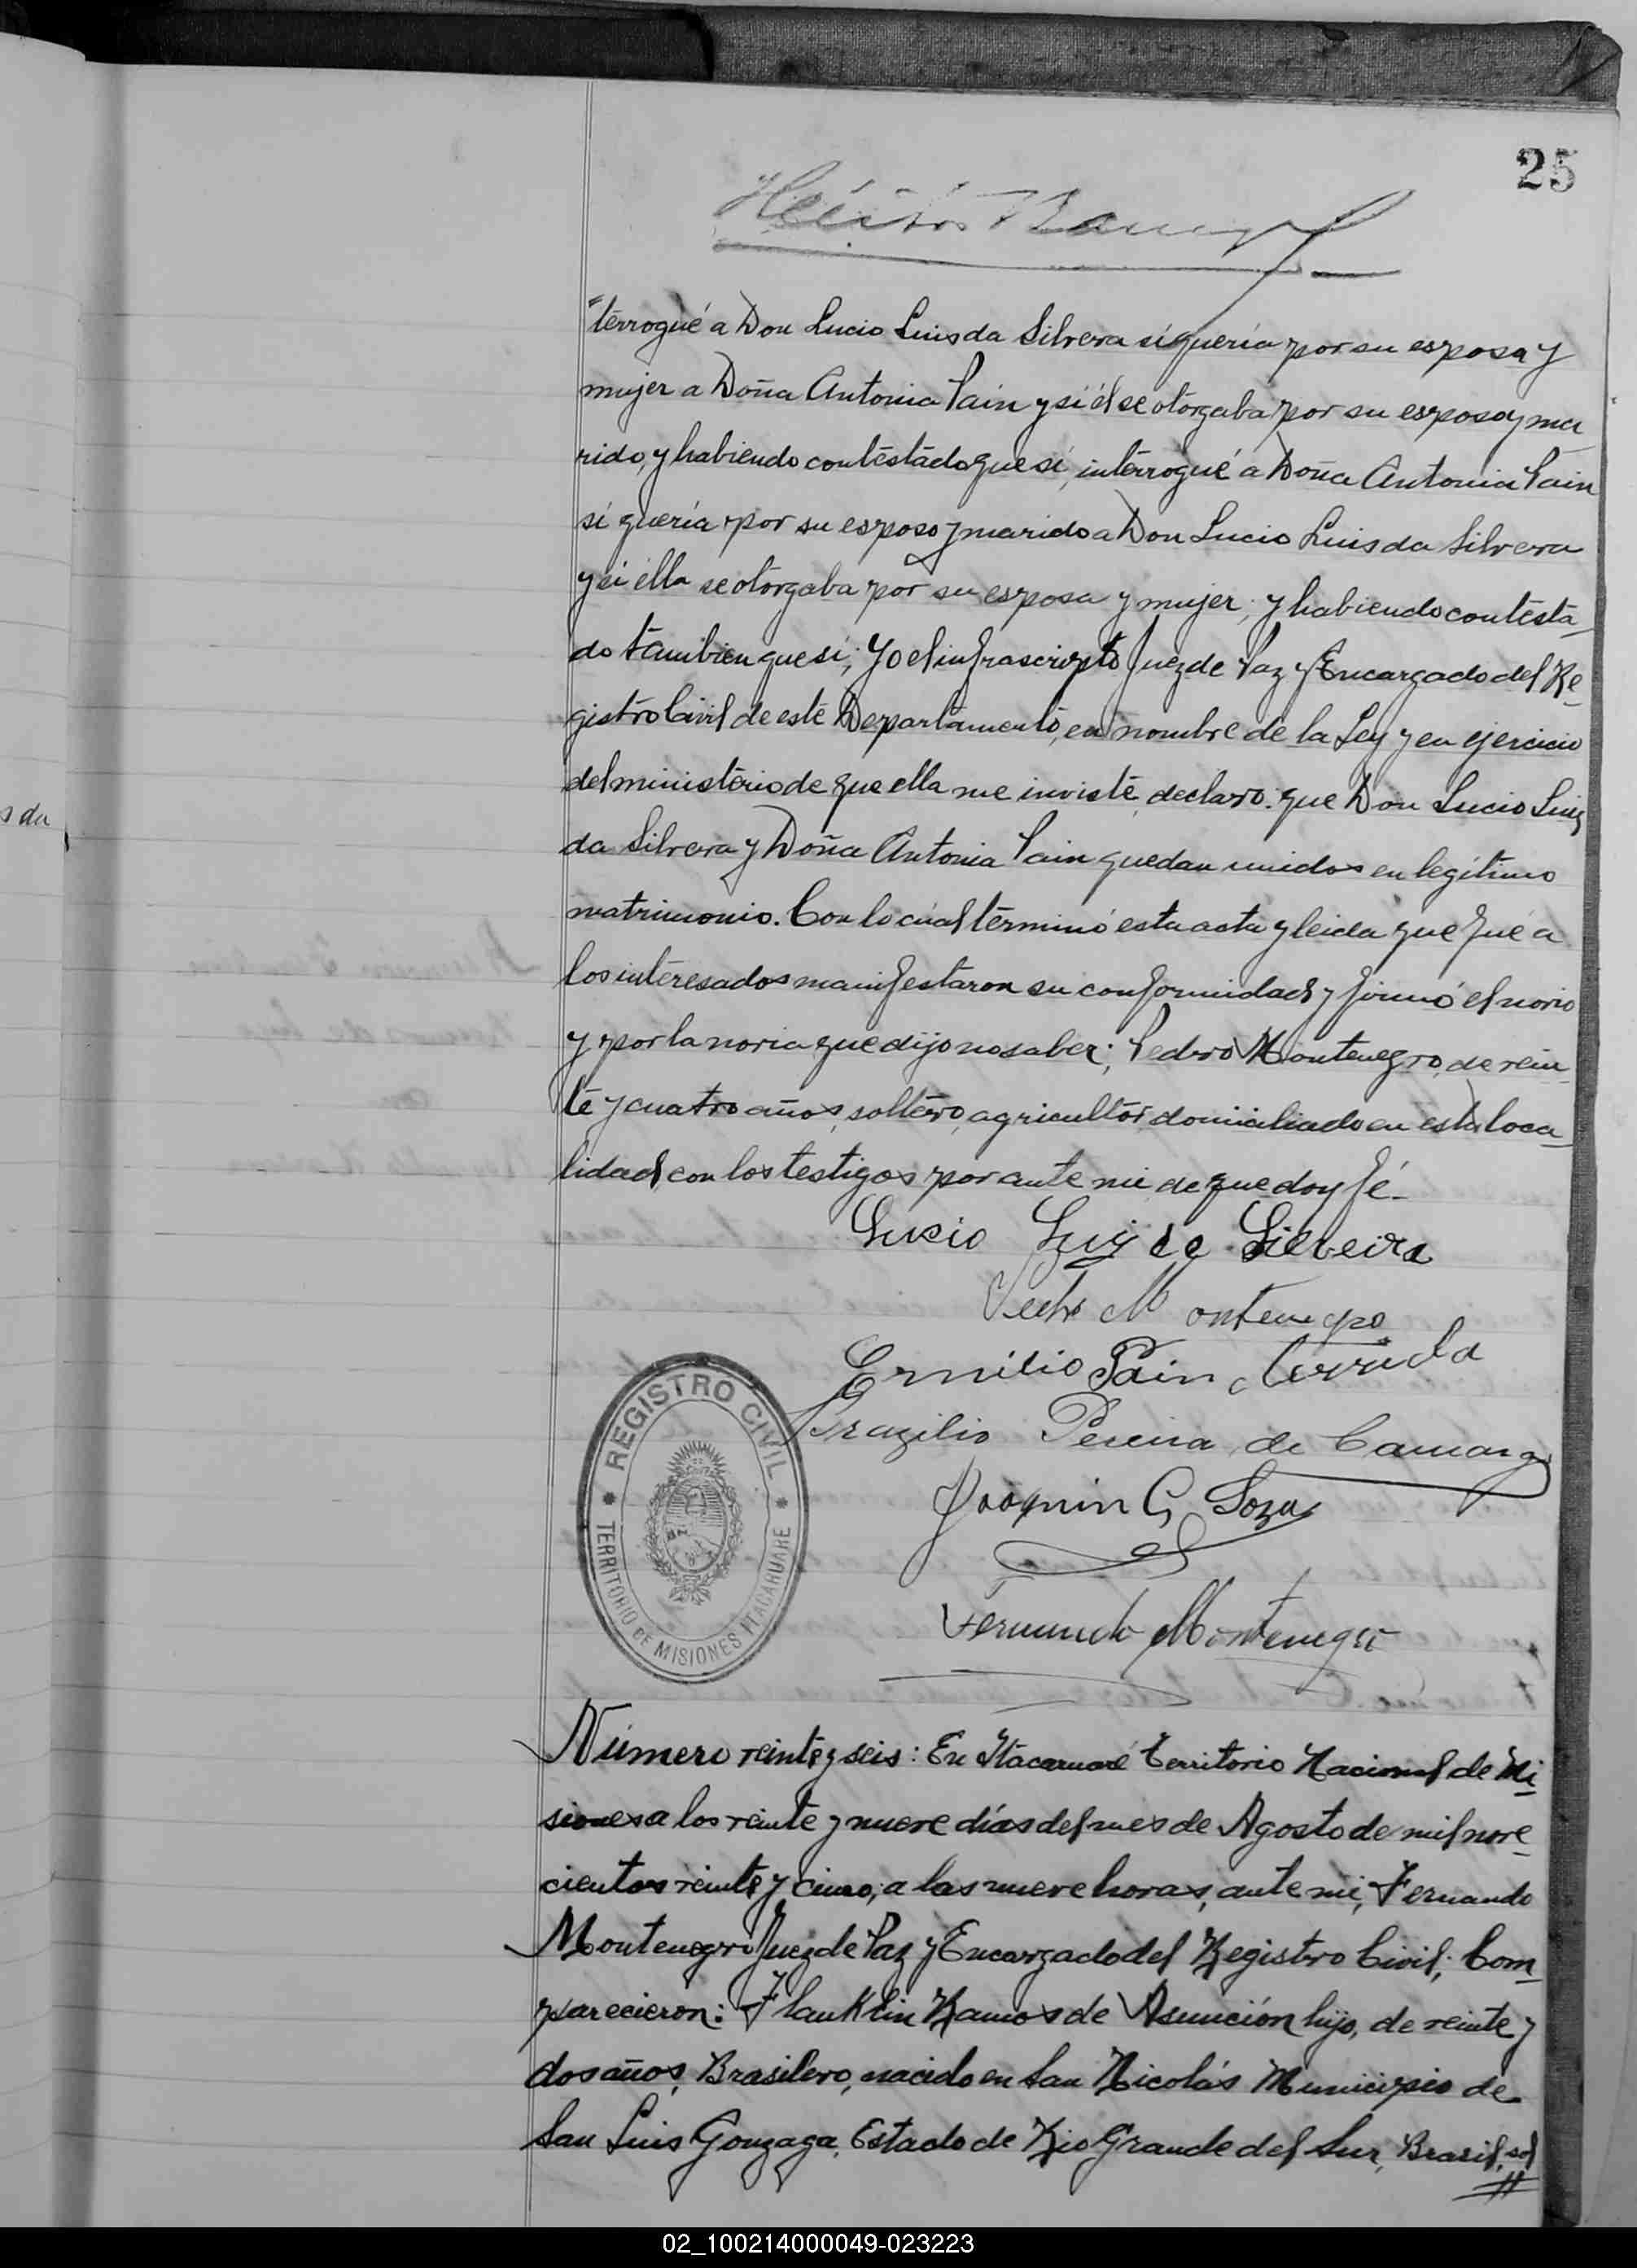 25
Ramos
"terrogué a Don Lucio Luis da Silvera si quería por su esposa y
mujer a Doña Antonia Pain y si él se otorgaba por su esposo y ma
rido, y habiendo contestado que si, interrogué a Doña Antonia Pain
si quería por su esposo y marido a Don Lucio Luis da Silvera
y si ella se otorgaba por su esposa y mujer; y habiendo contesta-
do tambien que si; Yo el infrascripto Juez de Paz y Encargado del Re-
gistro Civil de este Departamento, en nombre de la Ley y en ejercicio
del ministerio de que ella me inviste, declaro: que Don Lucio Luis
s da
da Silvera y Doña Antonia Pain quedan unidos en legítimo
matrimonio. Con lo cuál terminó esta acta y leida que fué a
los interesados manifestaron su conformidad y firmó el novio
y por la novia que dijo no saber; Pedro Montenegro, de vein-
te y cuatro años, soltero, agricultor, domiciliado en esta loca-
lidad, con los testigos por ante mi de que doy fé-
Lusio Luiz da Silveira
Pedro Montenegro
Ernilio Pain Arruda
Brazilio Pereira de Camargo
Joaquin G. Soza
Fernando Montenegro
REGISTRO CIVIL
TERRITORIO DE MISIONES ITACARUARE
Número veinte y seis: En Itacaruaré Territorio Nacional de Mi-
siones a los veinte y nueve días del mes de Agosto de mil nove-
cientos veinte y cinco, a las nueve horas, ante mi, Fernando
Montenegro Juez de Paz y Encargado del Registro Civil; Com-
parecieron: Flanklin Ramos de Asunción hijo, de veinte y
dos años, Brasilero, nacido en San Nicolás Municipio de
San Luis Gonzaga, Estado de Rio Grande del Sur, Brasil, sol
02_100214000049-023223